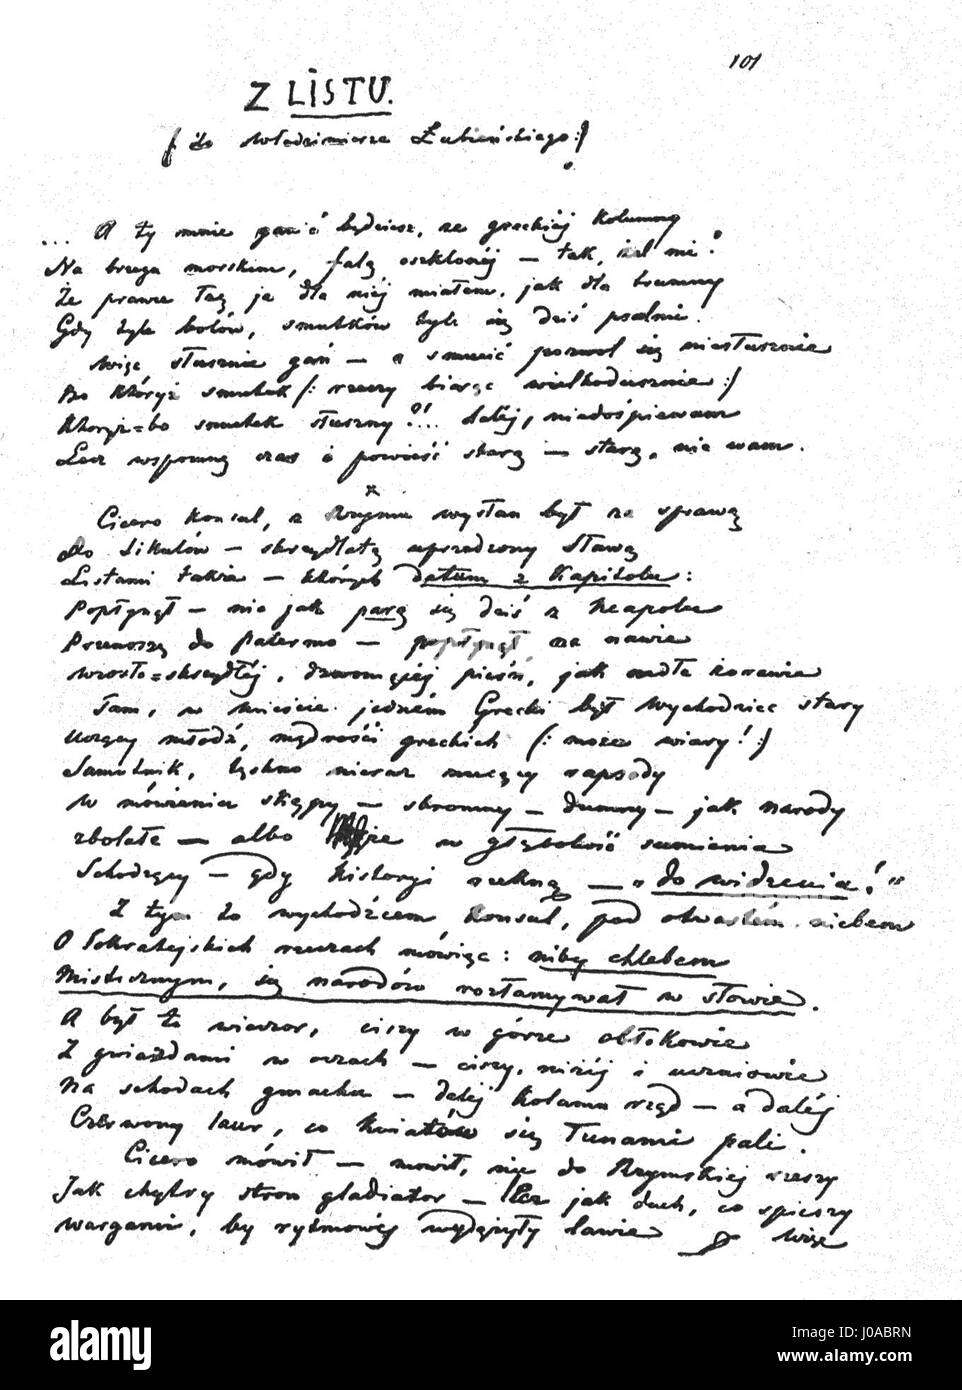 101
Z LISTU.
(: do Włodzimierza Łubieńskiego :)
... A ty mnie ganić będziesz, że greckiéj kolumny
Na brzegu morskim, falą oszklonéj — tak, żal mi!
Że prawie łzę ja dla niéj miałem, jak dla trumny
Gdy tyle bolów, smutków tyle się dziś psalmi.
Więc słusznie gań — a smucić pozwól się niesłusznie
Bo któryż smutek (: rzeczy biorąc wielkodusznie :)
Któryż=bo smutek słuszny?!... daléj, niedośpiewam
Lecz wspomnę czas i powieść starą — starą, nie wam.
x
Cicero Konsul, z Rzymu wysłan był ze sprawą
Do Sikulów — skrzydlatą uprzedzony sławą
Listami także — których datum z Kapitolu:
Popłynął — nie jak parą się dziś z Neapolu
Przenoszą do Palermo — popłynął na nawie
Wiosło=skrzydłéj, dzwoniącéj pieśń, jak mdłe żórawie
Tam, w mieście jedném Grecki był wychodziec stary
Uczący młódź, mądrości greckich (: może wiary! :)
Samotnik, tęskno nieraz nucący rapsody
W mówieniu skąpy — skromny — dumny — jak narody
zbolałe — albo w głębokość sumienia
Schodzący — gdy historyi rzekną — "do widzenia!"
Z tym to wychodźcem Konsul, pod otwartém niebem
O Sokratejskich rzeczach mówiąc: niby chlebem
Misticznym, się narodów rozłamywał w słowie.
A był to wieczor, ciszy w górze obłokowie
Z gwiazdami w oczach — ciszy, niżéj i uczniowie
Na schodach gmachu — daléj kolumn rząd — a daléj
Czérwony laur, co kwiatów się łunami pali.
Cicero mówił — mówił, nie do Rzymskiéj rzeszy
Jak chytry stron gladiator — lecz jak duch, co spieszy
Wargami, by rytmowéj wydążyły ławie
Więc
alamy
Image ID: J0ABRN
www.alamy.com